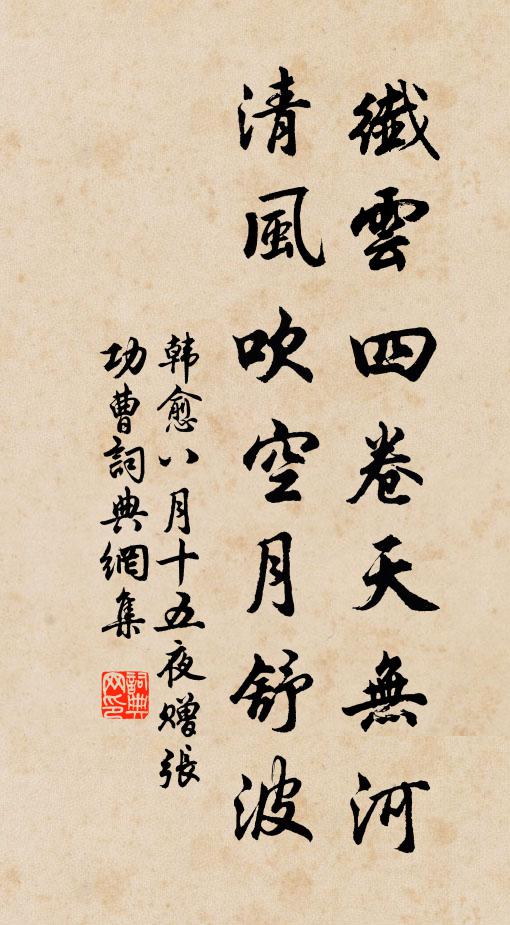 纖雲四卷天無河
清風吹空月舒波
韩愈八月十五夜赠張
功曹詞典網集
詞典
网印